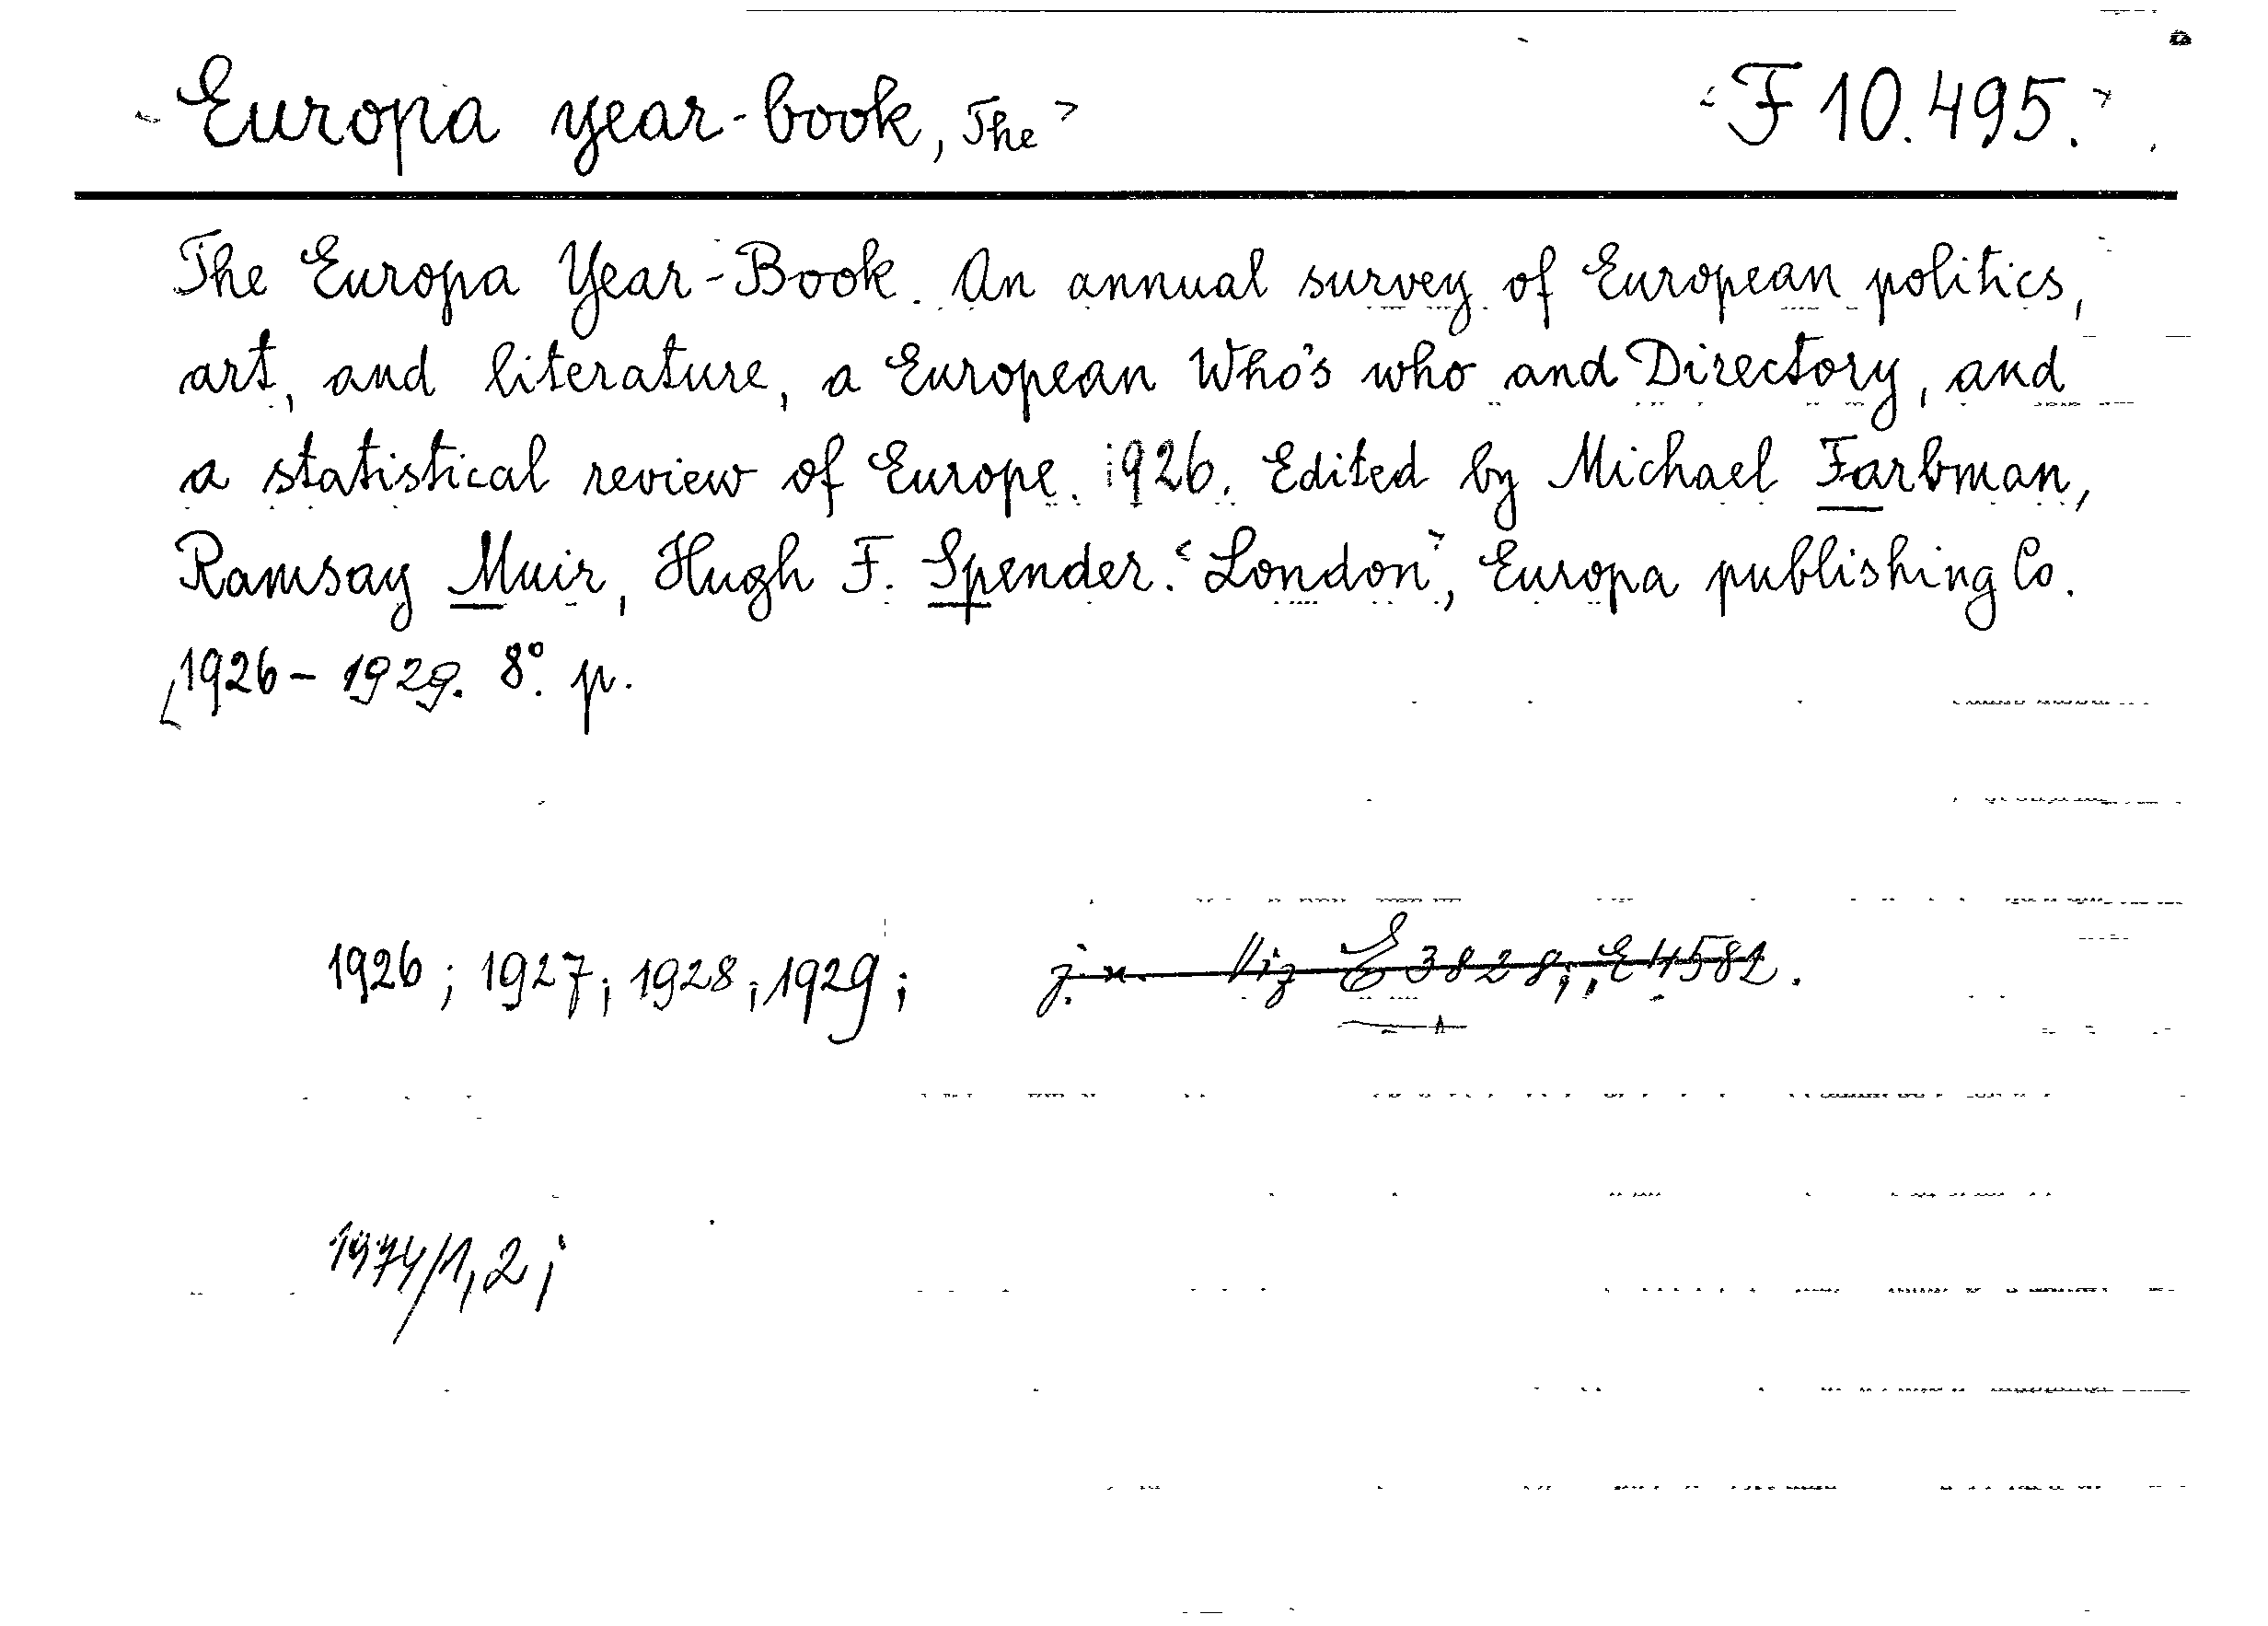 <Europa year-book, The> <F 10.495.>
The Europa Year-Book. An annual survey of European politics,
art, and literature, a European Who's who and Directory, and
a statistical review of Europe. 1926. Edited by Michael Farbman,
Ramsay Muir, Hugh F. Spender. <London>, Europa publishing Co.
[1926 - 1929. 8°. p.
1926; 1927; 1928; 1929; j. n. Viz E 3828; E 4582.
1974/1,2;